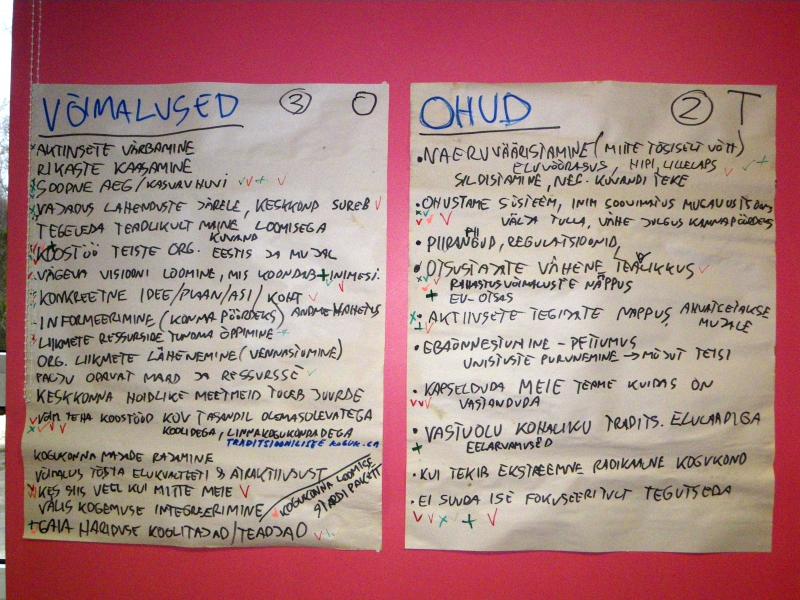 VÕIMALUSED 3 O
AKTIIVSETE VÄRBAMINE
RIKASTE KAASAMINE
SOODNE AEG/KASVAV HUVI
VAJADUS LAHENDUSTE JÄRELE, KESKKOND SUREB
TEGELEDA TEADLIKULT MAINE LOOMISEGA
KUVAND
KOOSTÖÖ TEISTE ORG. EESTIS JA MUJAL
VÄGEVA VISIOONI LOOMINE, MIS KOONDAB INIMESI
KONKREETNE IDEE/PLAAN/ASI/KOHT
- INFORMEERIMINE (KANNA PÖÖRDEKS) ANDMEKAHETUS
LIIKMETE RESSURSIDE TUNDMA ÕPPIMINE
ORG. LIIKMETE LÄHENEMINE (VENNASTUMINE)
PALJU ODAVAT MAAD JA RESSURSSE
KESKKONNA HOIDLIKE MEETMEID TULEB JUURDE
VÕIM. TEHA KOOSTÖÖD KOV TASANDIL OLEMASOLEVATEGA
KOOLIDEGA, LINNAKOGUKONDADEGA
TRADITSIOONILISTE KOGUK.GA
KOGUKONNA MAJADE RAJAMINE
VÕIMALUS TÕSTA ELUKVALITEETI & ATRAKTIIVSUST
KES SIIS VEEL KUI MITTE MEIE
VÄLIS KOGEMUSE INTEGREERIMINE
KOGUKONNA LOOMISE
STARDIPAKETT
GAIA HARIDUSE KOOLITAJAD/TEADJAD
OHUD 2 T
• NAERUVÄÄRISTAMINE (MITTE TÕSISELT VÕTT)
ELUVÕÕRASUS, HIPI, LILLELAPS
SILDISTAMINE, NEG. KUVANDI TEKE
• OHUSTAME SÜSTEEM, INIM SOOVIMATUS MUGAVUSTSOONIS
VÄLJA TULLA, VÄHE JULGUS KANNAPÖÖRDEKS
• PIIRANGUD, REGULATSIOONID,
• OTSUSTAJATE VÄHENE TEADLIKKUS
RAHASTUSVÕIMALUSTE NAPPUS
EV-OTSAS
• AKTIIVSETE TEGIJATE NAPPUS, AHVATLETAKSE
MUJALE
• EBAÕNNESTUMINE - PETTUMUS
UNISTUSTE PURUNEMINE → MÕJUT TEISI
• KAPSELDUDA MEIE TEAME KUIDAS ON
VASTANDUDA
• VASTUOLU KOHALIKU TRADITS. ELULAADIGA
EELARVAMUSED
• KUI TEKIB EKSTREEMNE RADIKAALNE KOGUKOND
• EI SUUDA ISE FOKUSEERITULT TEGUTSEDA